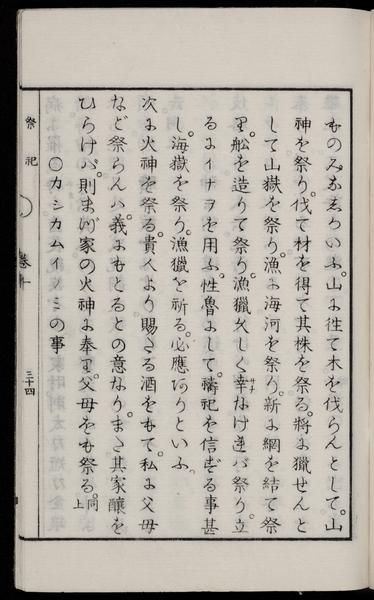 ものみなしかいふ。山に往て木を伐らんとして。山
神を祭り。伐て材を得て其株を祭る。將に獵せんと
して山嶽を祭り。漁に海河を祭り。新に網を結て祭
里。舩を造りて祭り。漁獵久しく幸サチなけ連バ祭り。立
るにイナヲを用ふ。性魯にして。禱祀を信ずる事甚
し。海嶽を祭り。漁獵を祈る。必應ありといふ。
次に火神を祭る。貴人より賜さる酒をもて。私に父母
など祭らんハ。義にもとるとの意なり。また其家釀を
ひらけバ。則まづ家の火神に奉里。父母をも祭る。同上
〇カシカムイノミの事
祭祀
三十四